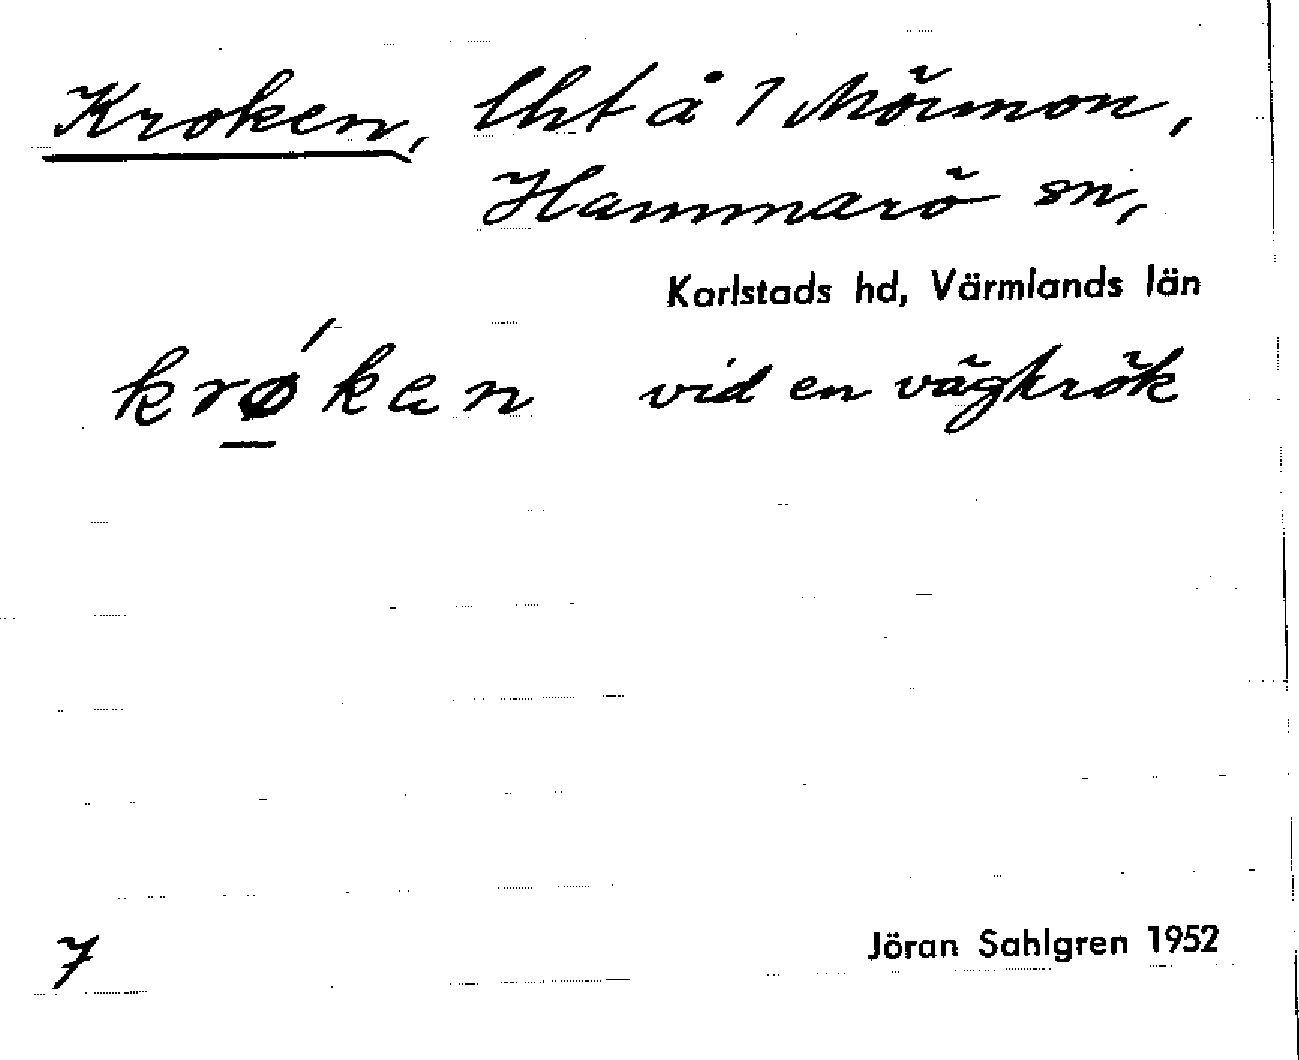 Kroken, lht å 1 Mörmon,
Hammarö sn,
Karlstads hd, Värmlands län
krǿken vid en vägkrök
7 Jöran Sahlgren 1952